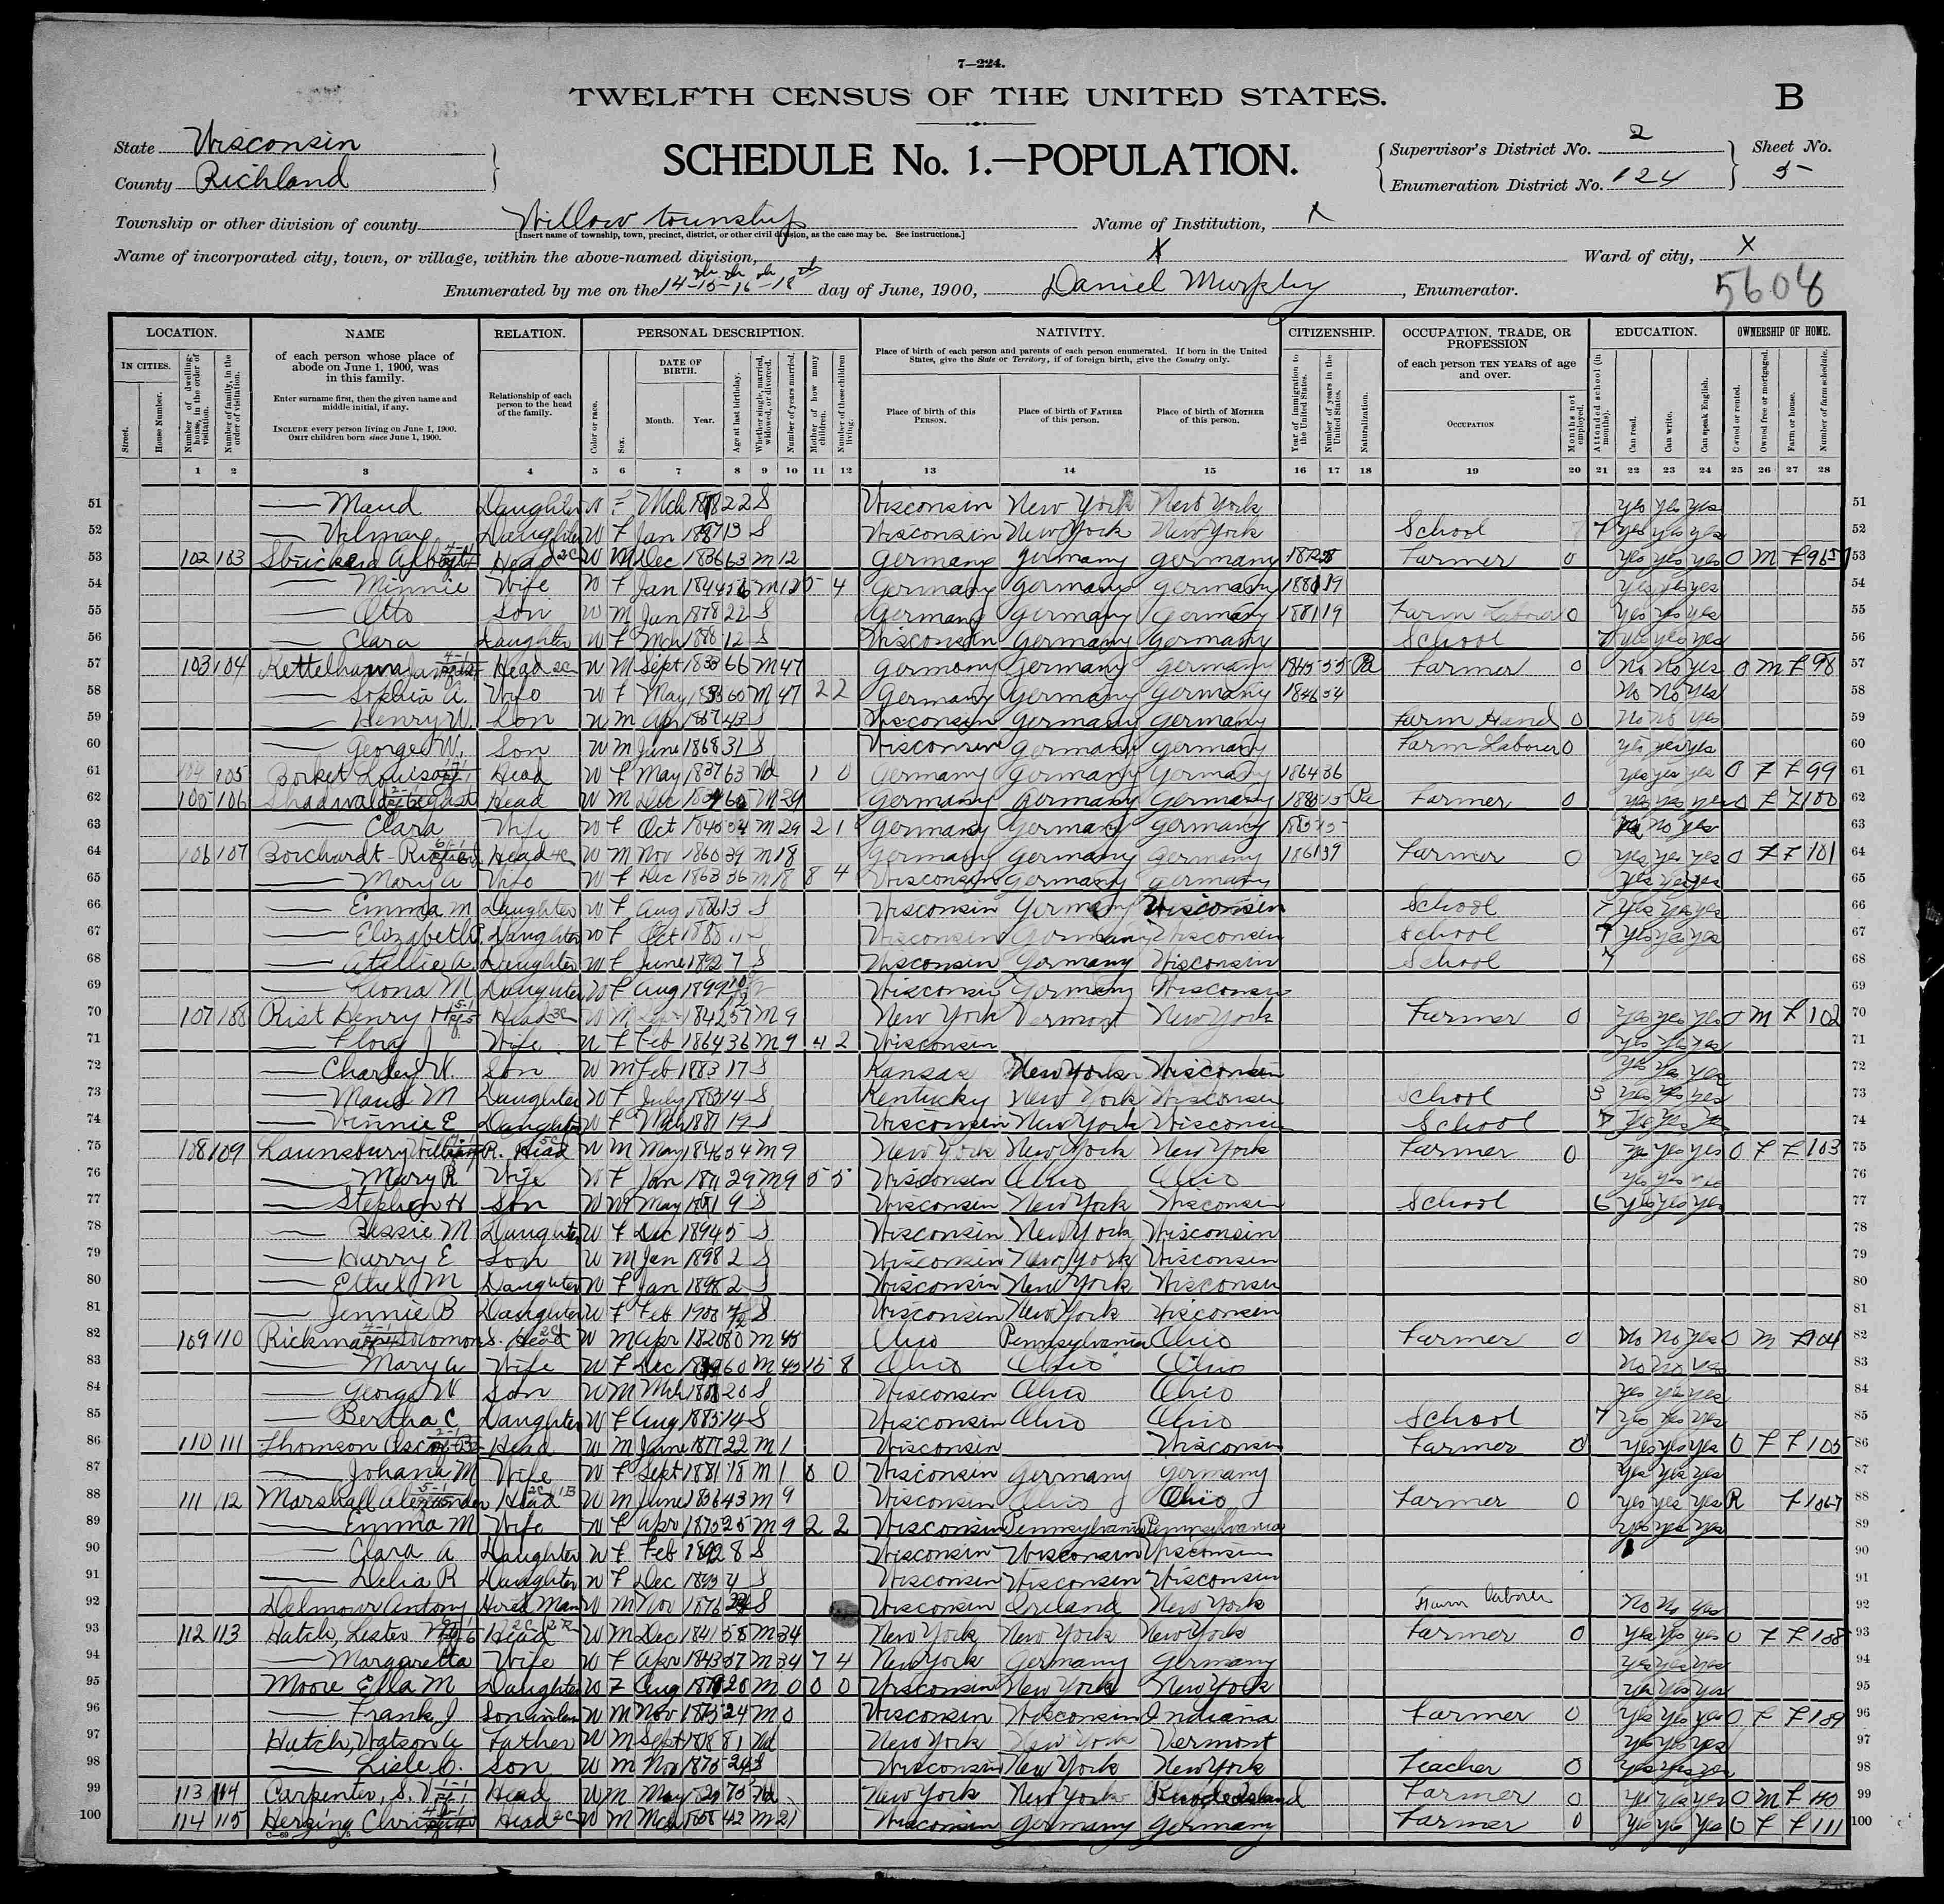 7—224.
TWELFTH CENSUS OF THE UNITED STATES.
B
State Wisconsin
County Richland
SCHEDULE No. 1.—POPULATION.
Supervisor's District No. 2
Enumeration District No. 124
Sheet No. 5
Township or other division of county Willow township
[Insert name of township, town, precinct, district, or other civil division, as the case may be. See instructions.]
Name of Institution, X
Name of incorporated city, town, or village, within the above-named division, X
Ward of city, X
Enumerated by me on the 14-15-16-18th day of June, 1900, Daniel Murphy, Enumerator.
5608
LOCATION. NAME RELATION. PERSONAL DESCRIPTION. NATIVITY. CITIZENSHIP. OCCUPATION, TRADE, OR PROFESSION EDUCATION. OWNERSHIP OF HOME.
IN CITIES.
Street.
House Number.
Number of dwelling-house, in the order of visitation.
Number of family, in the order of visitation.
of each person whose place of abode on June 1, 1900, was in this family.
Enter surname first, then the given name and middle initial, if any.
INCLUDE every person living on June 1, 1900.
OMIT children born since June 1, 1900.
Relationship of each person to the head of the family.
Color or race.
Sex.
DATE OF BIRTH.
Month. Year.
Age at last birthday.
Whether single, married, widowed, or divorced.
Number of years married.
Mother of how many children.
Number of these children living.
Place of birth of each person and parents of each person enumerated. If born in the United States, give the State or Territory, if of foreign birth, give the Country only.
Place of birth of this PERSON.
Place of birth of FATHER of this person.
Place of birth of MOTHER of this person.
Year of immigration to the United States.
Number of years in the United States.
Naturalization.
of each person TEN YEARS of age and over.
OCCUPATION
Months not employed.
Attended school (in months).
Can read.
Can write.
Can speak English.
Owned or rented.
Owned free or mortgaged.
Farm or house.
Number of farm schedule.
1 2 3 4 5 6 7 8 9 10 11 12 13 14 15 16 17 18 19 20 21 22 23 24 25 26 27 28
51 Maud Daughter W F Mch 22 S Wisconsin New York New York yes yes yes 51
52 Daughter W F Jan 13 S Wisconsin New York New York School 7 yes yes yes 52
53 102 103 Head W M Dec 1836 63 M 12 Germany Germany Germany Farmer 0 yes yes yes O M F 53
54 Minnie Wife W F Jan 1844 M 12 5 4 Germany Germany Germany 19 yes yes yes 54
55 Otto Son W M Jan 1878 22 S Germany Germany Germany 1881 19 Farm Laborer 0 yes yes yes 55
56 Clara Daughter W F Mch 1888 12 S Wisconsin Germany Germany School 7 yes yes yes 56
57 103 104 Head W M Sept 66 M 47 Germany Germany Germany 1845 55 Pa Farmer 0 No No yes O M F 98 57
58 Sophia A. Wife W F May 60 M 47 2 2 Germany Germany Germany 1846 54 No No yes 58
59 Henry W. Son W M Apr 1857 43 S Wisconsin Germany Germany Farm Hand 0 No No yes 59
60 George W. Son W M June 1868 31 S Wisconsin Germany Germany Farm Laborer 0 yes yes yes 60
61 104 105 Borket Louisa Head W F May 1837 63 Wd 1 0 Germany Germany Germany 1864 36 yes yes yes O F F 99 61
62 105 106 August Head W M Dec M 29 Germany Germany Germany Farmer 0 yes yes yes O F F 100 62
63 Clara Wife W F Oct 1845 54 M 29 2 1 Germany Germany Germany 1885 15 no yes 63
64 106 107 Borchardt Head W M Nov 1860 39 M 18 Germany Germany Germany 1861 39 Farmer 0 yes yes yes O F F 101 64
65 Mary A Wife W F Dec 1863 36 M 18 8 4 Wisconsin Germany Germany yes yes yes 65
66 Emma M Daughter W F Aug 1886 13 S Wisconsin Germany Wisconsin School 7 yes yes yes 66
67 Elizabeth Daughter W F Oct 1888 11 S Wisconsin Germany Wisconsin School 7 yes yes yes 67
68 Daughter W F June 1892 7 S Wisconsin Germany Wisconsin School 7 68
69 M Daughter W F Aug 1899 Wisconsin Germany Wisconsin 69
70 107 108 Rist Henry H Head W M 1842 57 M 9 New York Vermont New York Farmer 0 yes yes yes O M F 102 70
71 Flora J Wife W F Feb 1864 36 M 9 4 2 Wisconsin yes yes yes 71
72 Charley W. Son W M Feb 1883 17 S Kansas New York Wisconsin yes yes yes 72
73 Maud M Daughter W F July 1885 14 S Kentucky New York Wisconsin School 3 yes yes yes 73
74 Vinnie E Daughter W F Mch S Wisconsin New York Wisconsin School 7 yes yes 74
75 108 109 Launsbury William R. Head W M May 1846 54 M 9 New York New York New York Farmer 0 yes yes yes O F F 103 75
76 Mary R Wife W F Jan 1871 29 M 9 5 5 Wisconsin Ohio Ohio yes yes yes 76
77 Stephen H Son W M May 1891 9 S Wisconsin New York Wisconsin School 6 yes yes yes 77
78 Bessie M Daughter W F Dec 1894 5 S Wisconsin New York Wisconsin 78
79 Harry E Son W M Jan 1898 2 S Wisconsin New York Wisconsin 79
80 Ethel M Daughter W F Jan 1898 2 S Wisconsin New York Wisconsin 80
81 Jennie B Daughter W F Feb 1900 S Wisconsin New York Wisconsin 81
82 109 110 Rickman Solomon S. Head W M Apr 1820 80 M 45 Ohio Pennsylvania Ohio Farmer 0 No No yes O M F 104 82
83 Mary A Wife W F Dec 60 M 45 15 8 Ohio Ohio Ohio No No yes 83
84 George W Son W M Mch 20 S Wisconsin Ohio Ohio yes yes yes 84
85 Bertha C Daughter W F Aug 1885 14 S Wisconsin Ohio Ohio School 7 yes yes yes 85
86 110 111 Thomson Oscar Head W M June 1877 22 M 1 Wisconsin Wisconsin Farmer 0 yes yes yes O F F 105 86
87 Johana M Wife W F Sept 1881 18 M 1 0 0 Wisconsin Germany Germany yes yes yes 87
88 111 112 Marshall Alexander Head W M June 1856 43 M 9 Wisconsin Ohio Ohio Farmer 0 yes yes yes R F 106-7 88
89 Emma M Wife W F Apr 1875 25 M 9 2 2 Wisconsin Pennsylvania Pennsylvania yes yes yes 89
90 Clara A Daughter W F Feb 1892 8 S Wisconsin Wisconsin Wisconsin 90
91 Delia R Daughter W F Dec 1895 4 S Wisconsin Wisconsin Wisconsin 91
92 Delmour Antony Hired Man W M Nov 1876 S Wisconsin Ireland New York Farm Laborer No No yes 92
93 112 113 Hatch, Lester Head W M Dec 1841 58 M 34 New York New York New York Farmer 0 yes yes yes O F F 108 93
94 Margaretta Wife W F Apr 1843 57 M 34 7 4 New York Germany Germany yes yes yes 94
95 Moore Ella M Daughter W F Aug 1879 20 M 0 0 0 Wisconsin New York New York yes yes yes 95
96 Frank J Son in law W M Nov 1875 24 M 0 Wisconsin Wisconsin Indiana Farmer 0 yes yes yes O F F 109 96
97 Hatch, Watson A Father W M Sept 1818 81 Wd New York New York Vermont yes yes yes 97
98 Lisle C. Son W M Nov 1875 24 S Wisconsin New York New York Teacher 0 yes yes yes 98
99 113 114 Carpenter, S. V Head W M May Wd New York New York Rhode Island Farmer 0 yes yes yes O M F 110 99
100 114 115 Herzing Christ Head W M Mch 1858 42 M 21 Wisconsin Germany Germany Farmer 0 yes yes yes O F F 111 100